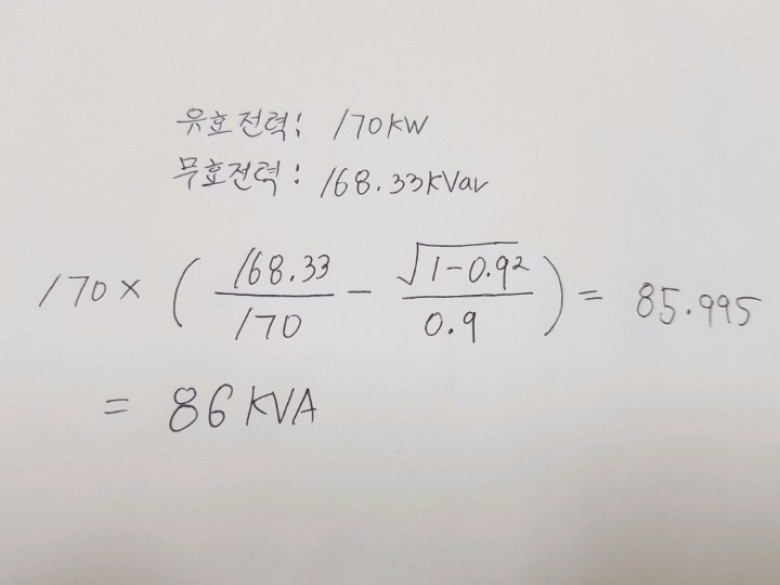 유효전력: 170KW
무효전력: 168.33KVar
170 × ( 168.33/170 - √(1-0.9²)/0.9 ) = 85.995
= 86 KVA